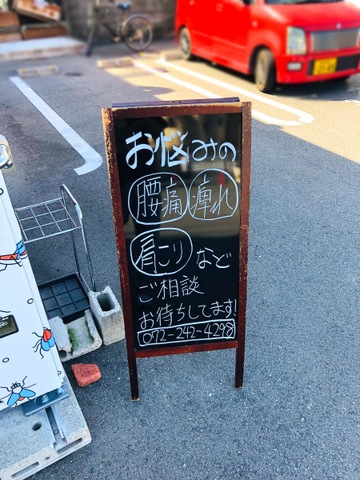 お悩みの
腰痛 痺れ
肩こり など
ご相談
お待ちしてます!
072-242-4298